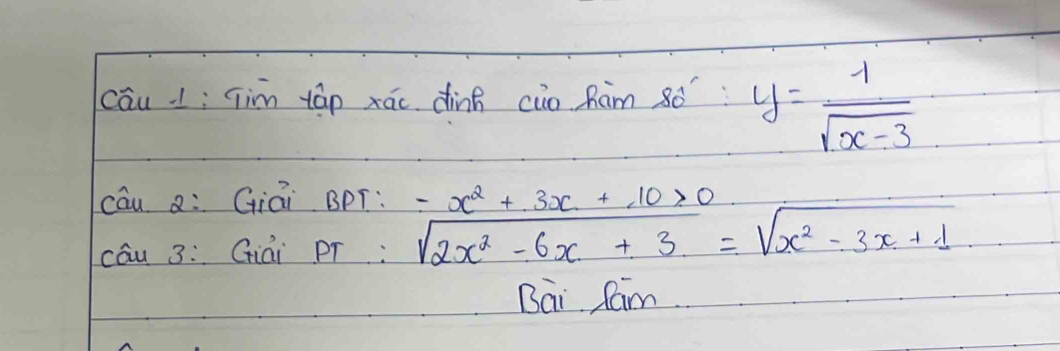 Câu 1: Tìm tập xác định của hàm số: y = 1/√(x - 3)
câu 2: Giải BPT: - x² + 3x + 10 > 0
câu 3: Giải PT: √(2x² - 6x + 3) = √(x² - 3x + 1)
Bài làm